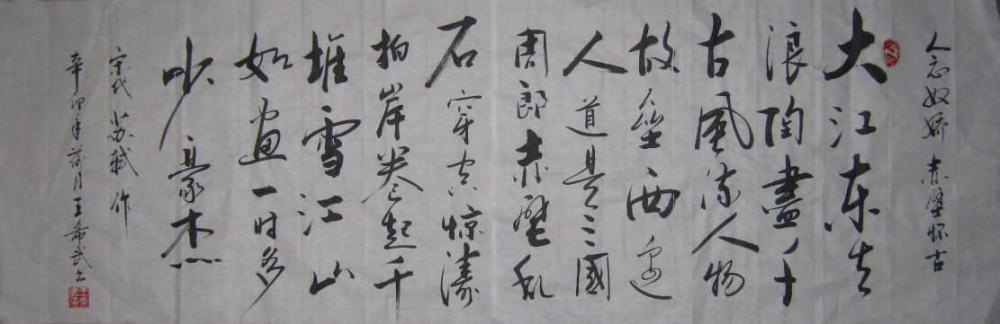 念奴娇 赤壁怀古
大江东去
浪陶盡千
古風流人物
故壘西邊
人道是三國
周郎赤壁乱
石穿空惊濤
拍岸卷起千
堆雪江山
如畫一时多
少豪杰
宋代 苏轼 作
辛卯年月王希武书